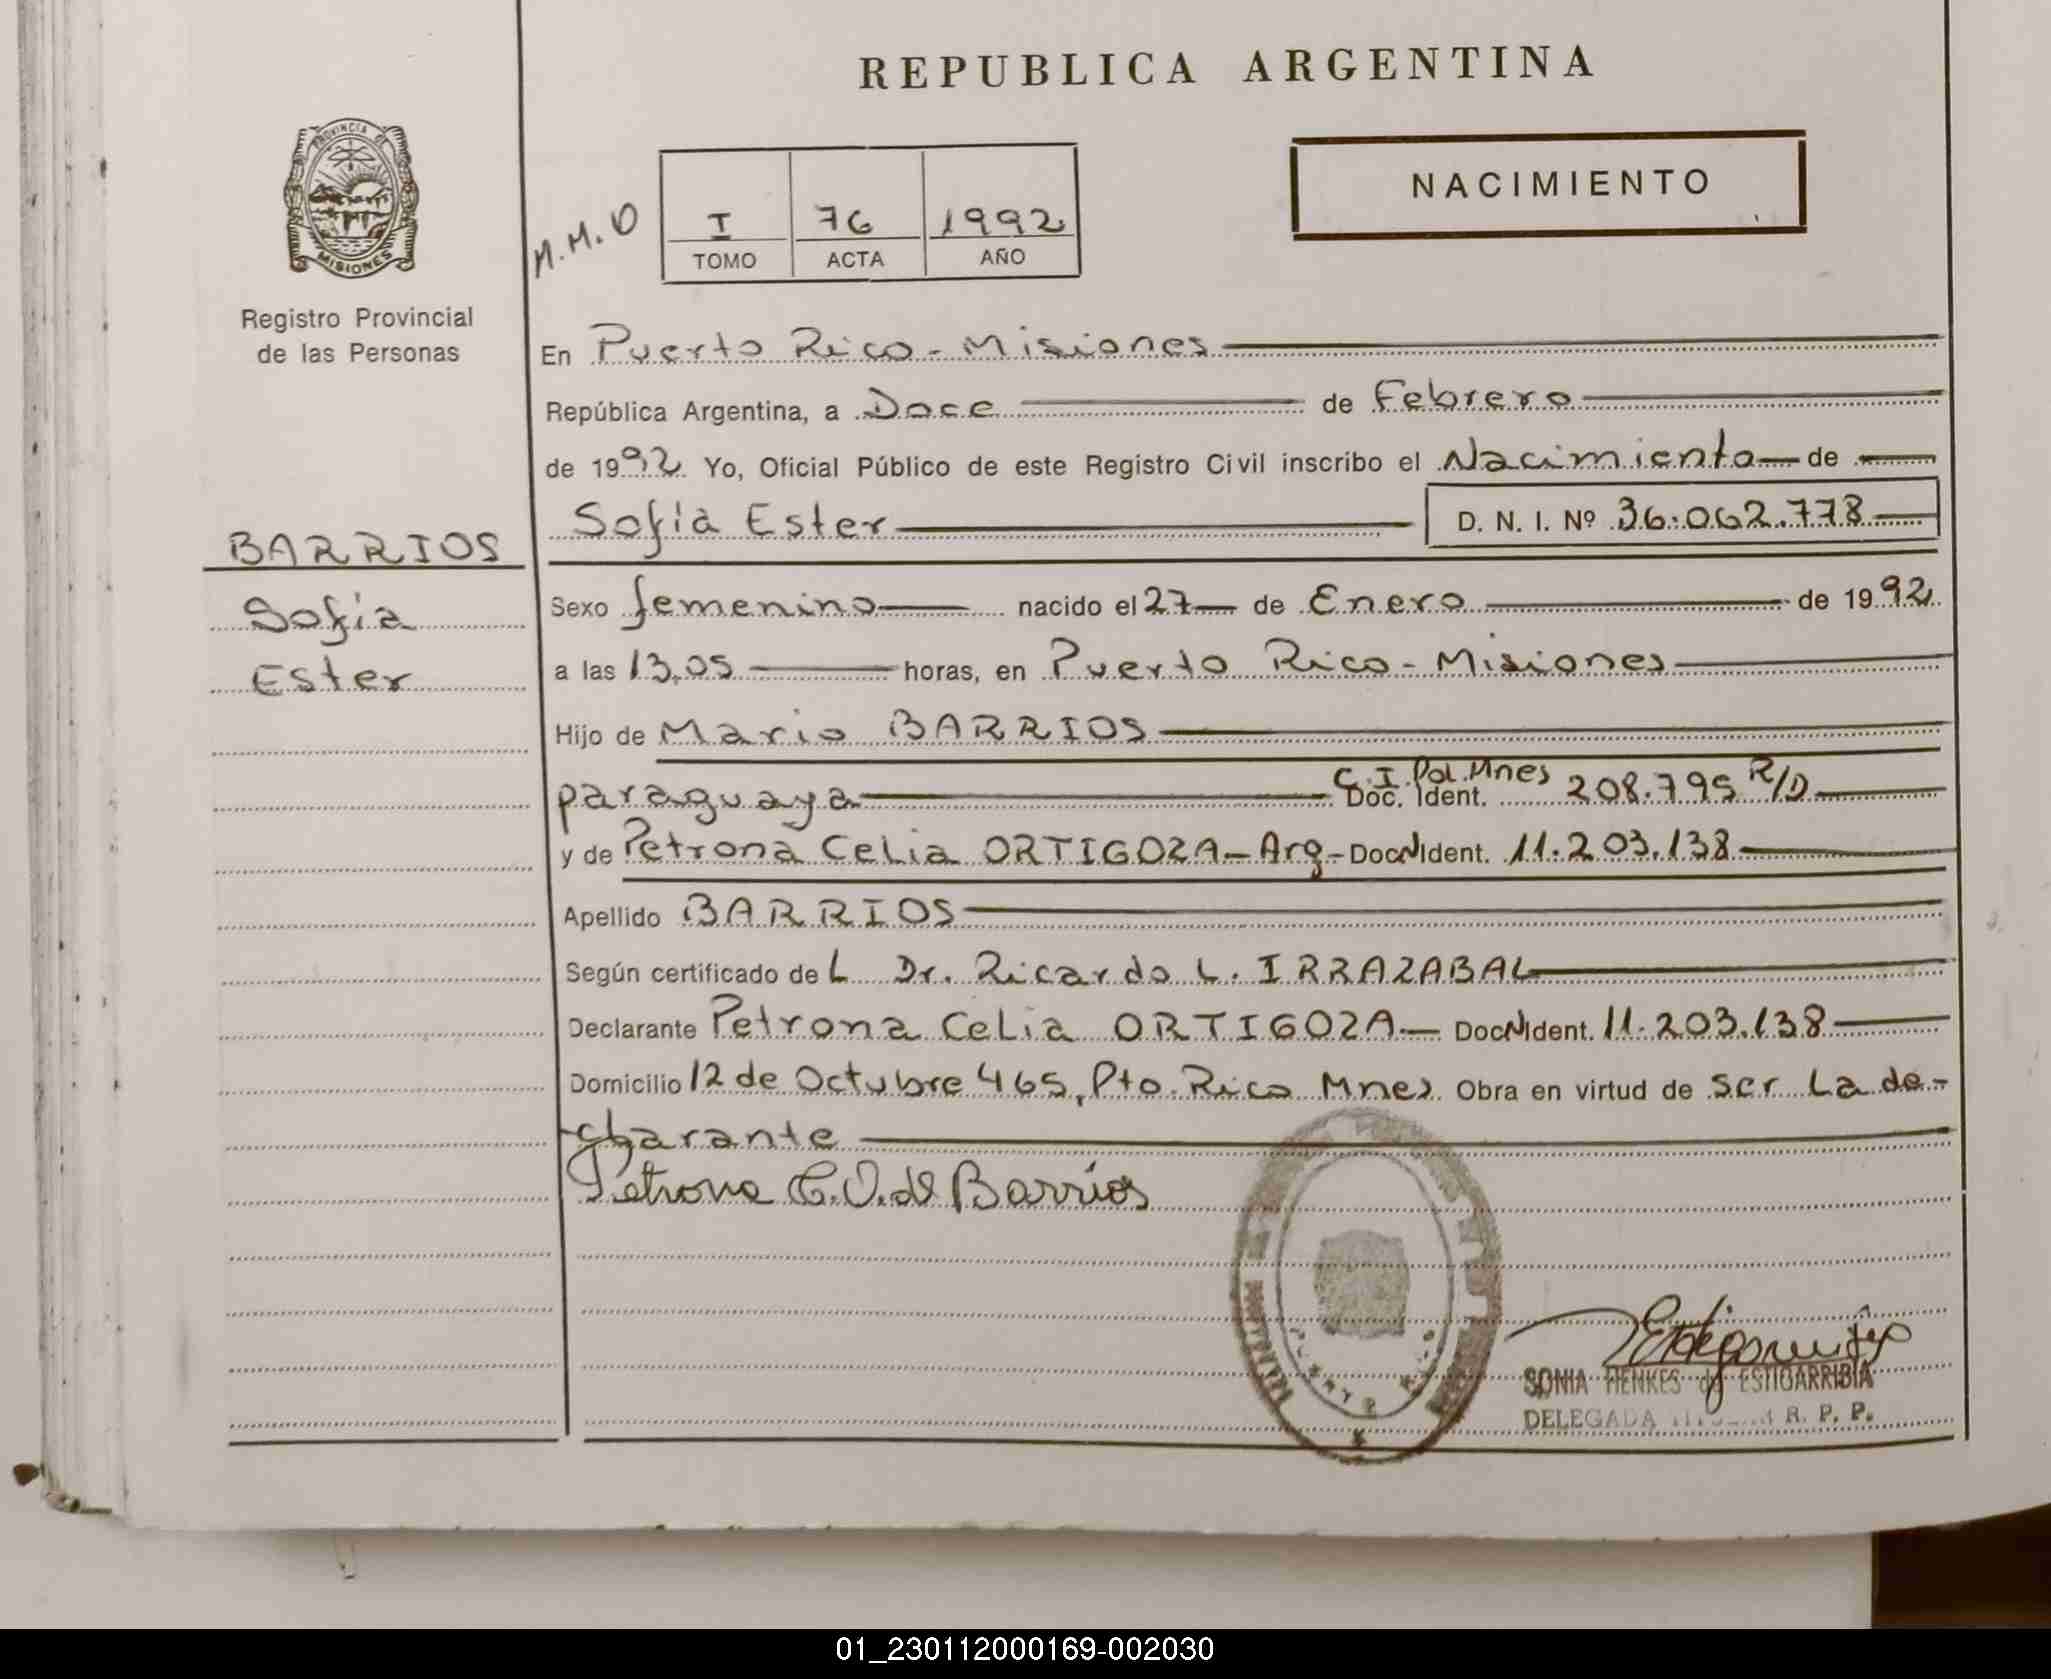 REPUBLICA ARGENTINA
NACIMIENTO
M.M.O
I 76 1992
TOMO ACTA AÑO
PROVINCIA DE
MISIONES
Registro Provincial
de las Personas
BARRIOS
Sofia
Ester
En Puerto Rico - Misiones
República Argentina, a Doce de Febrero
de 1992 Yo, Oficial Público de este Registro Civil inscribo el Nacimiento de
Sofia Ester D. N. I. Nº 36.062.778
Sexo femenino nacido el 27 de Enero de 1992
a las 13,05 horas, en Puerto Rico - Misiones
Hijo de Mario BARRIOS
paraguaya C.I. Pol. Mnes Doc. Ident. 208.795 R/D
y de Petrona Celia ORTIGOZA - Arg - DocNIdent. 11.203.138
Apellido BARRIOS
Según certificado deL Dr. Ricardo L. IRRAZABAL
Declarante Petrona Celia ORTIGOZA - DocNIdent. 11.203.138
Domicilio 12 de Octubre 465, Pto. Rico Mnes Obra en virtud de ser La de-
-clarante
Petrona C.O. de Barrios
SONIA HENKES de ESTIGARRIBIA
DELEGADA R. P. P.
01_230112000169-002030